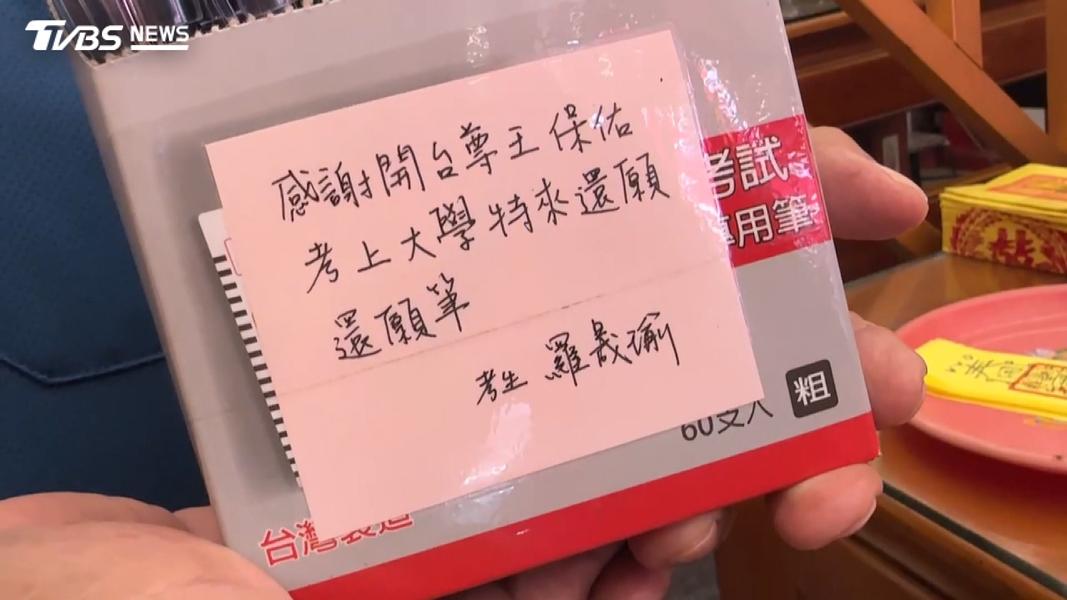 TVBS NEWS
感謝開台尊王保佑
考上大學特來還願
還願筆
考生 羅晟瑜
考試
專用筆
60支入
粗
台灣製造